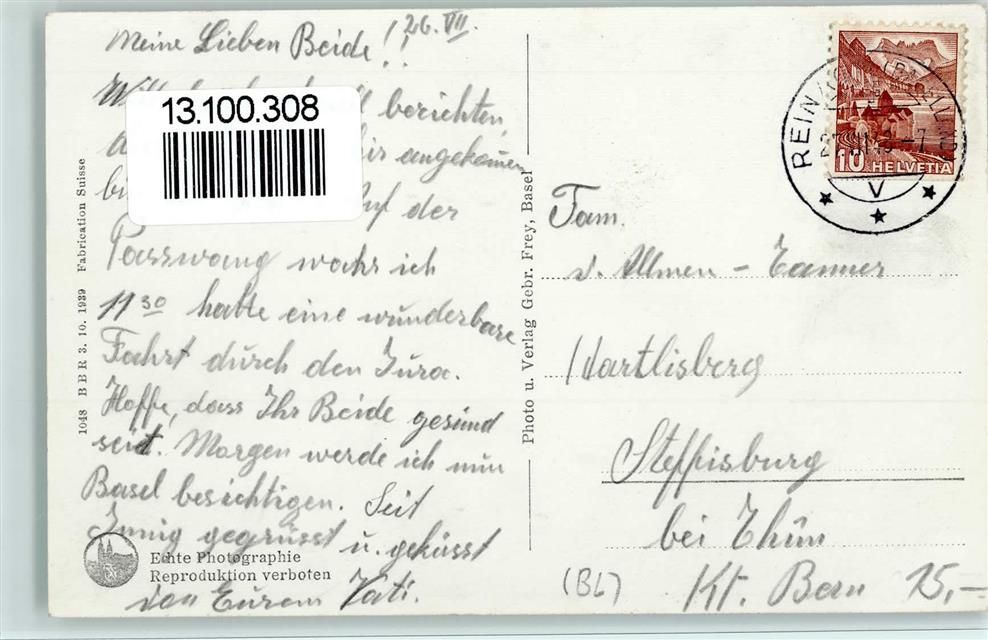 26. VII.
Meine Lieben Beide!!
berichten,
angekommen
auf der
Passwang wahr ich
11 30 hatte eine wunderbare
Fahrt durch den Jura.
Hoffe, dass Ihr Beide gesund
seit. Morgen werde ich nun
Basel besichtigen. Seit
Innig gegrüsst u. geküsst
von Eurem Vati.
13.100.308
1048 BBR 3. 10. 1939 Fabrication Suisse
Echte Photographie
Reproduktion verboten
Photo u. Verlag Gebr. Frey, Basel
10 HELVETIA
REINACH
V
Fam.
v. Allmen - Tanner
Hartlisberg
Steffisburg
bei Thun
Kt. Bern
15,-
(BL)